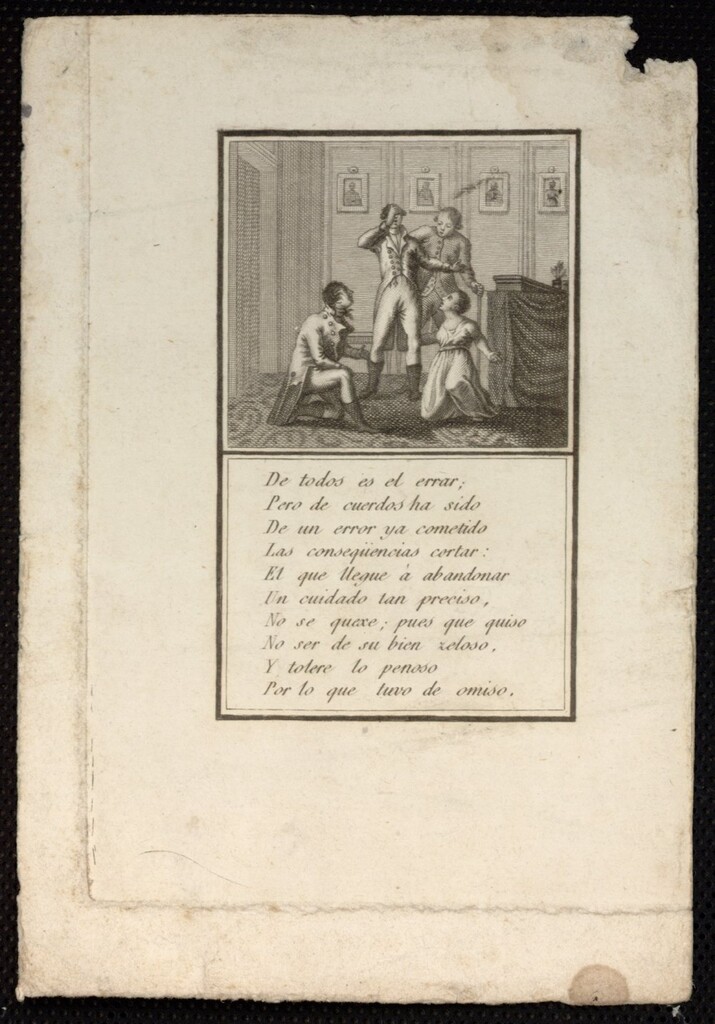 De todos es el errar;
Pero de cuerdos ha sido
De un error ya cometido
Las conseqüencias cortar:
El que llegue à abandonar
Un cuidado tan preciso,
No se quexe; pues que quiso
No ser de su bien zeloso,
Y tolere lo penoso
Por lo que tuvo de omiso.